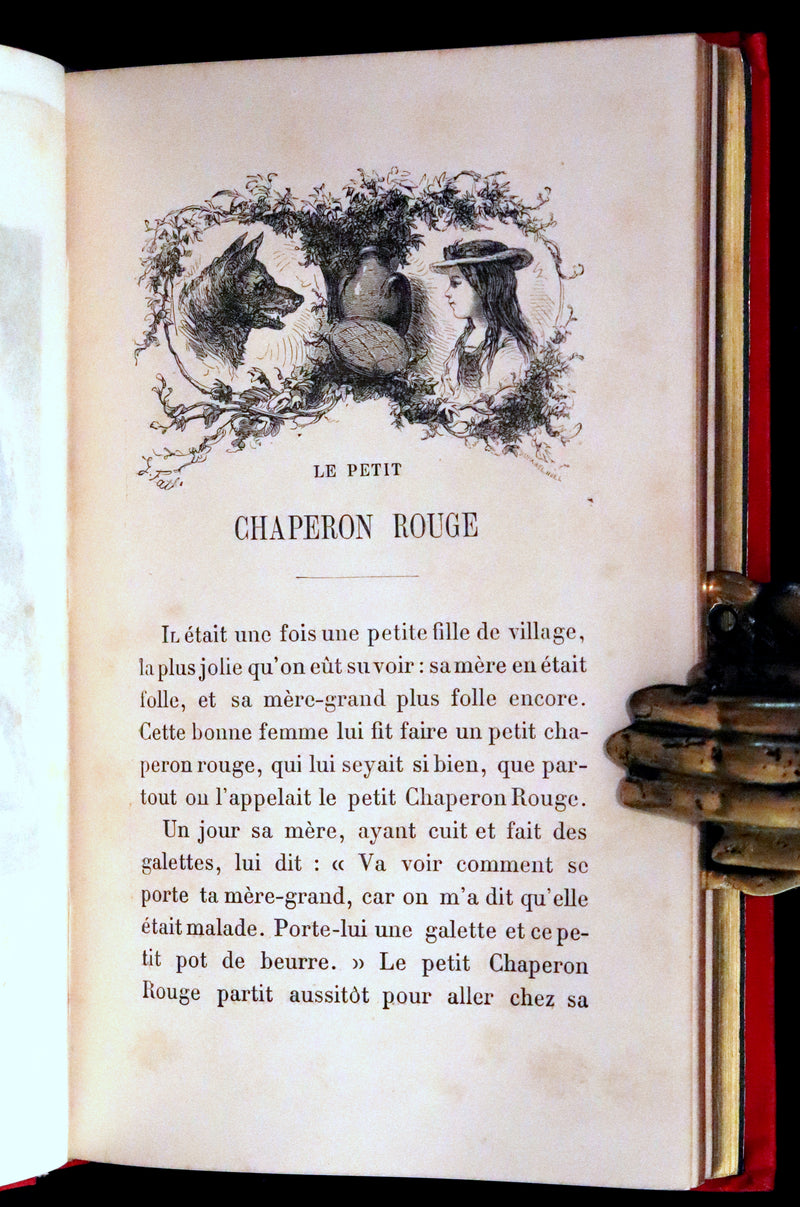 LE PETIT
CHAPERON ROUGE
IL était une fois une petite fille de village,
la plus jolie qu'on eût su voir : sa mère en était
folle, et sa mère-grand plus folle encore.
Cette bonne femme lui fit faire un petit cha-
peron rouge, qui lui seyait si bien, que par-
tout on l'appelait le petit Chaperon Rouge.
Un jour sa mère, ayant cuit et fait des
galettes, lui dit : « Va voir comment se
porte ta mère-grand, car on m'a dit qu'elle
était malade. Porte-lui une galette et ce pe-
tit pot de beurre. » Le petit Chaperon
Rouge partit aussitôt pour aller chez sa